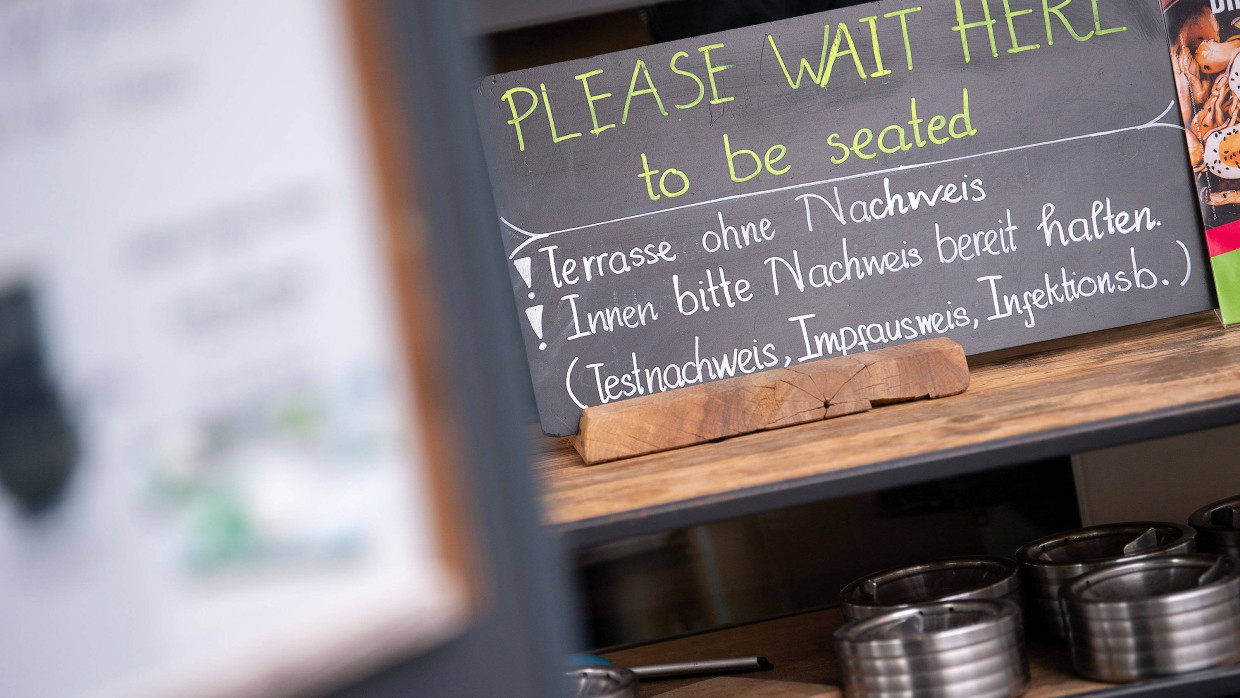 PLEASE WAIT HERE
to be seated
! Terrasse ohne Nachweis
! Innen bitte Nachweis bereit halten.
(Testnachweis, Impfausweis, Infektionsb.)